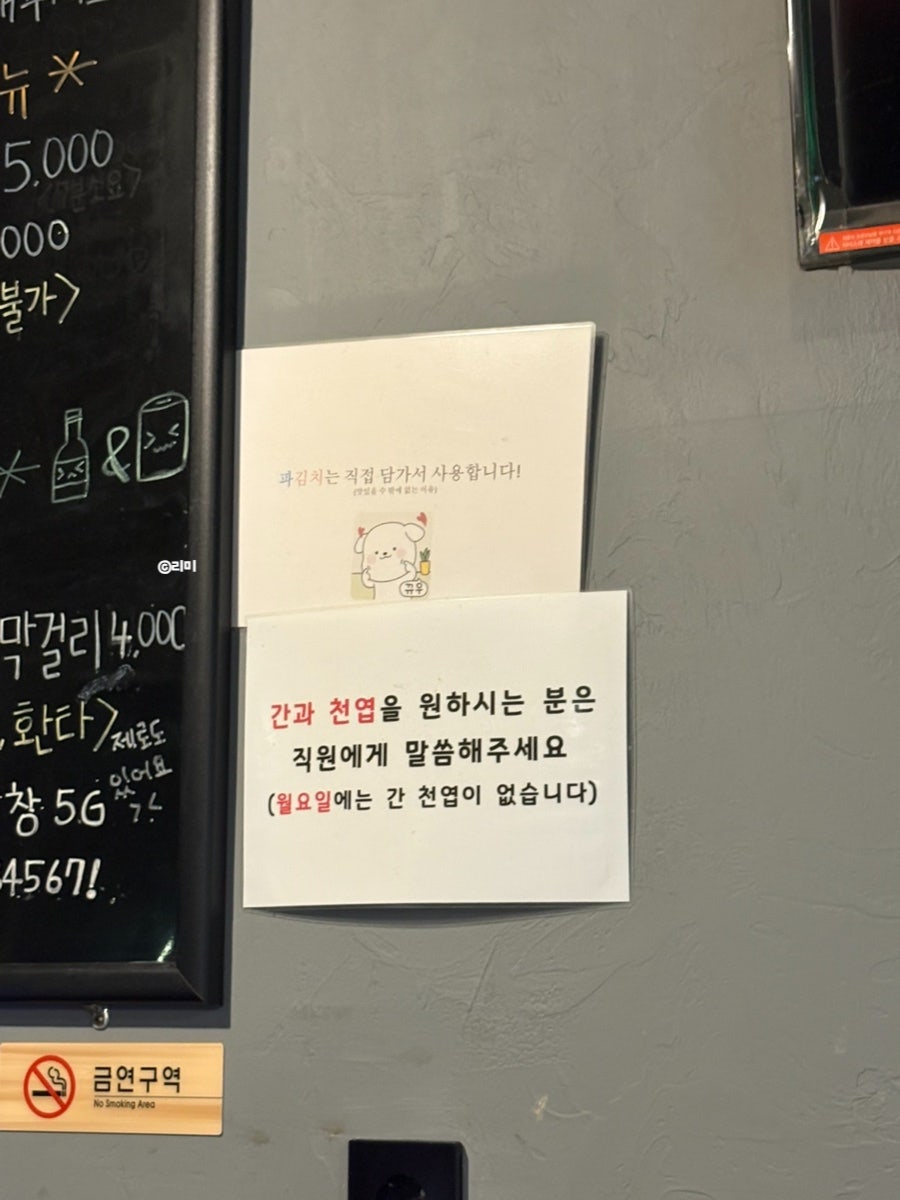 뉴 *
5,000
<7분소요>
000
불가>
* &
막걸리 4.000
, 환타>
제로도
있어요
창 5G
4567!
파김치는 직접 담가서 사용합니다!
(맛있을 수 밖에 없는 이유)
뀨우
간과 천엽을 원하시는 분은
직원에게 말씀해주세요
(월요일에는 간 천엽이 없습니다)
©리미
금연구역
No Smoking Area